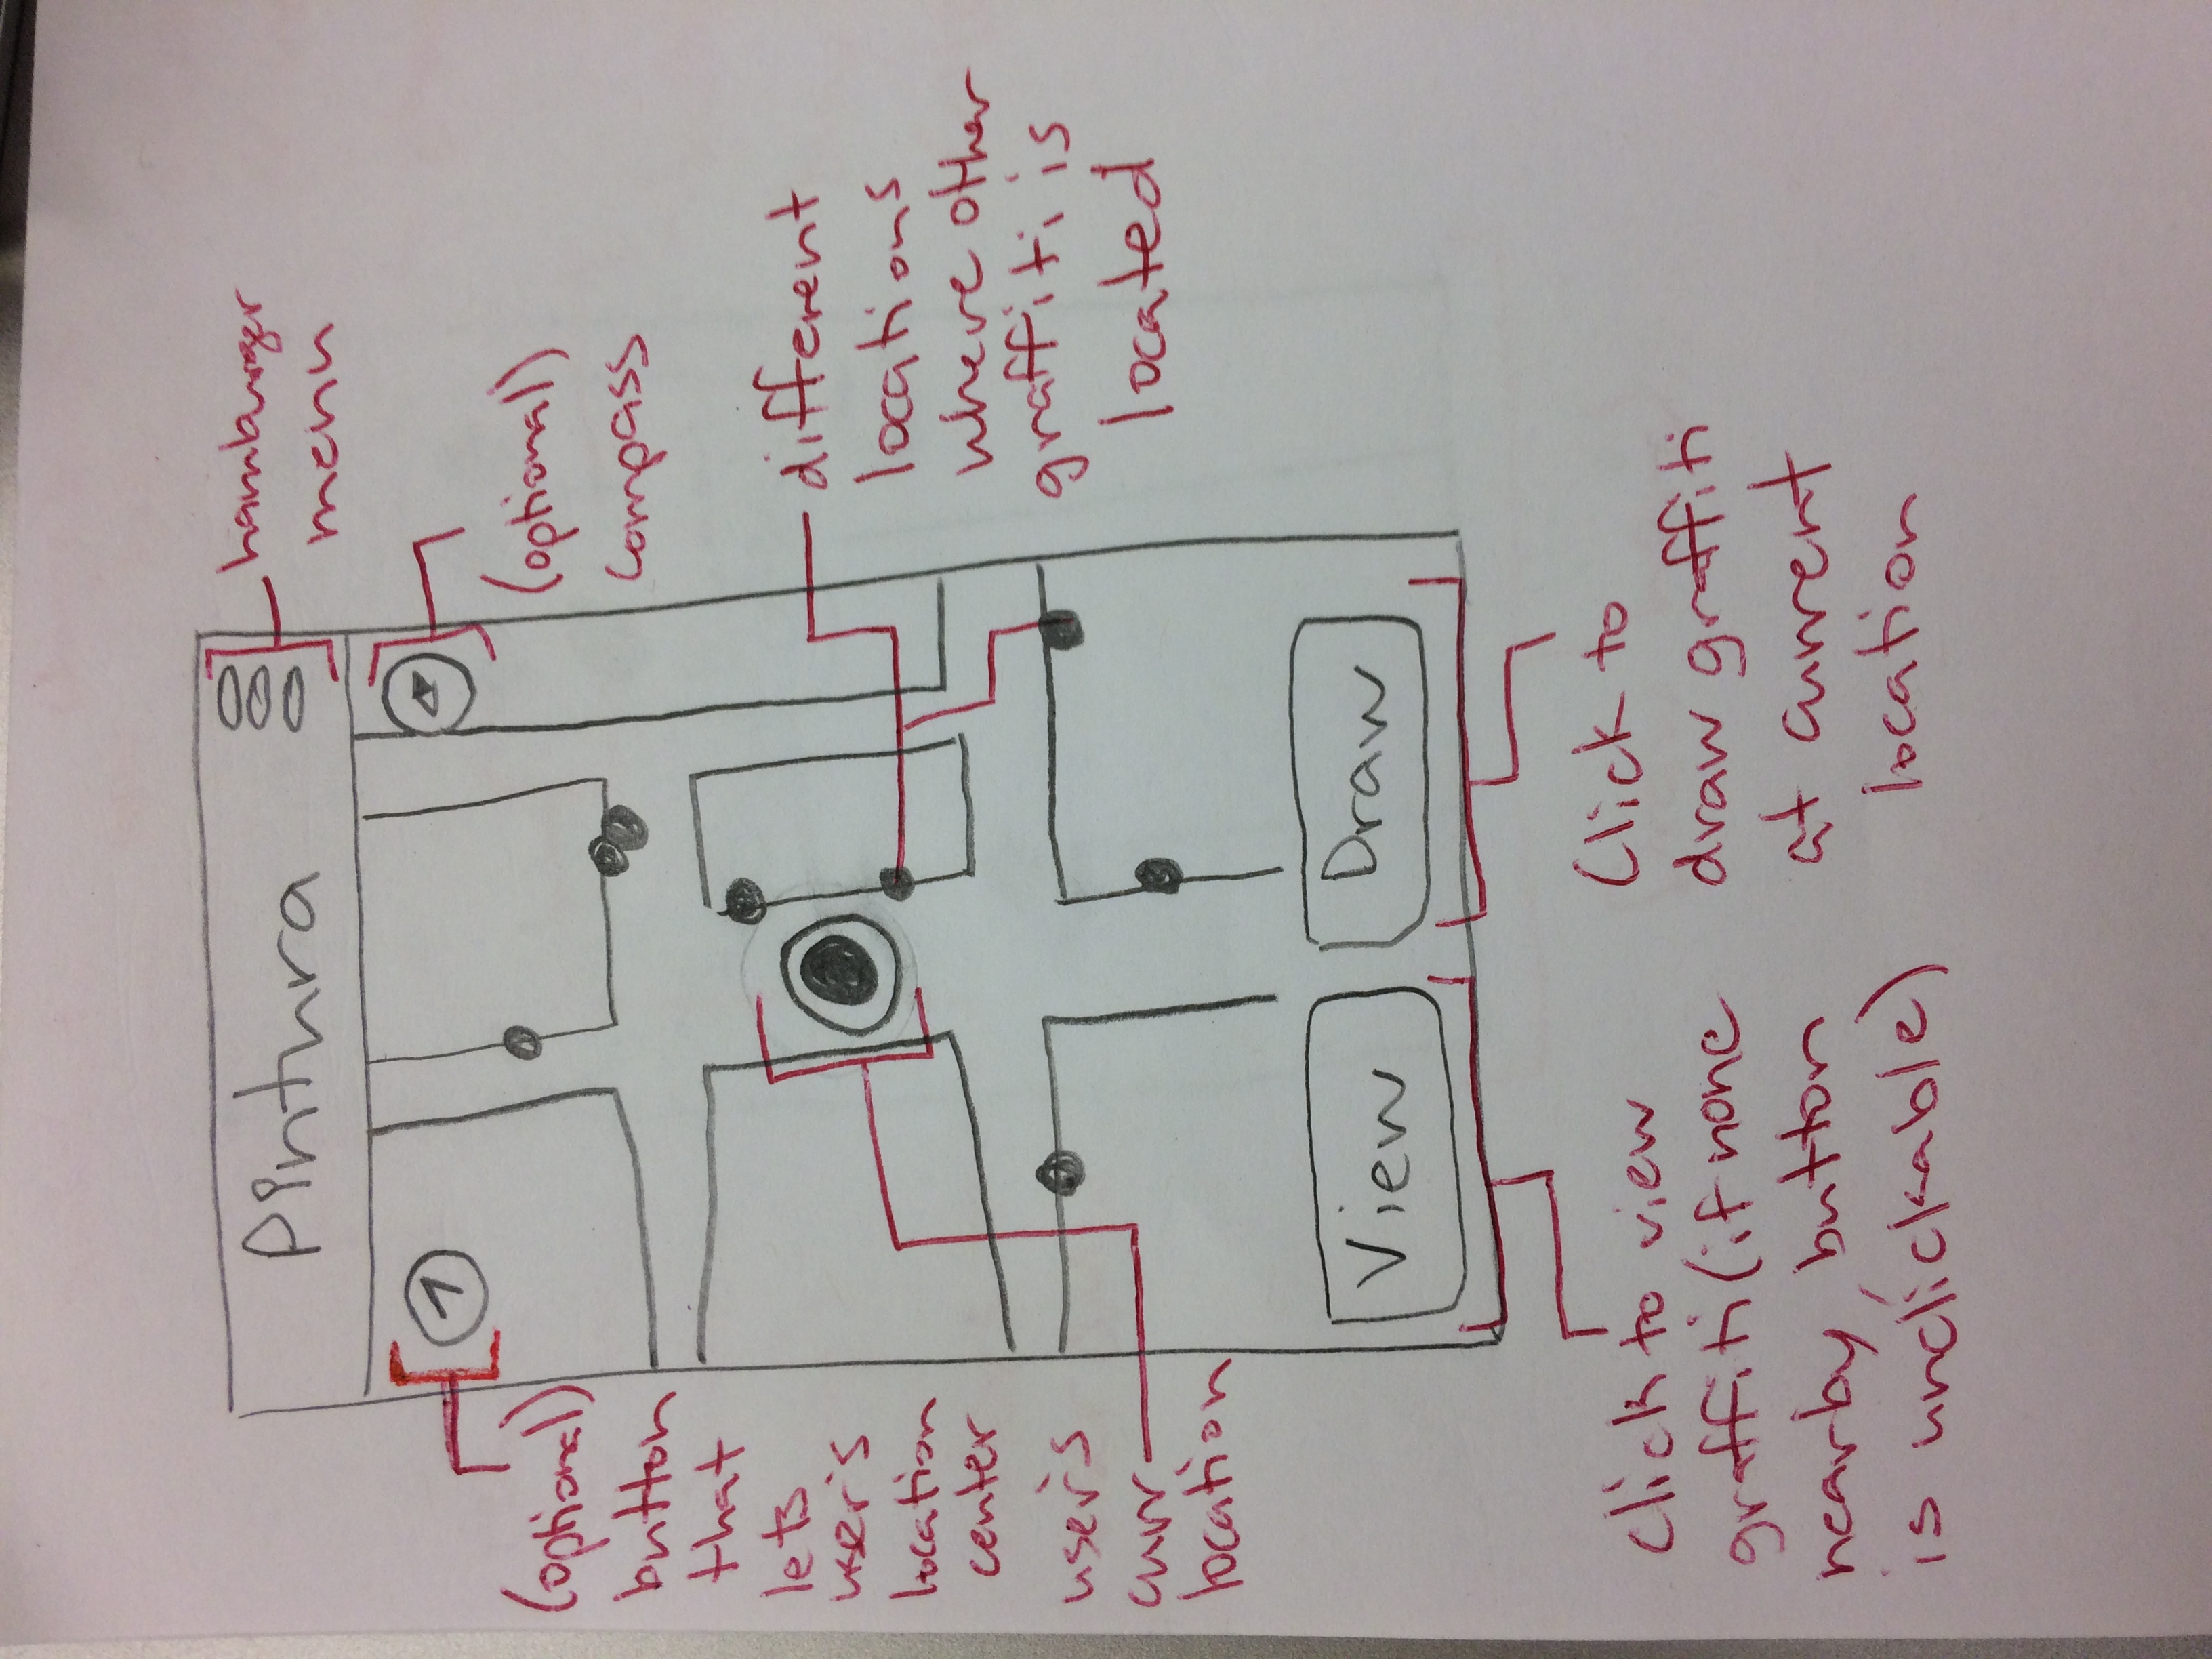 Pintura
hamburger
menu
(optional)
button
that
lets
user's
location
center
(optional)
compass
different
locations
where other
graffiti is
located
user's
curr
location
View
Draw
Click to view
graffiti (if none
nearby, button
is unclickable)
Click to
draw graffiti
at current
location